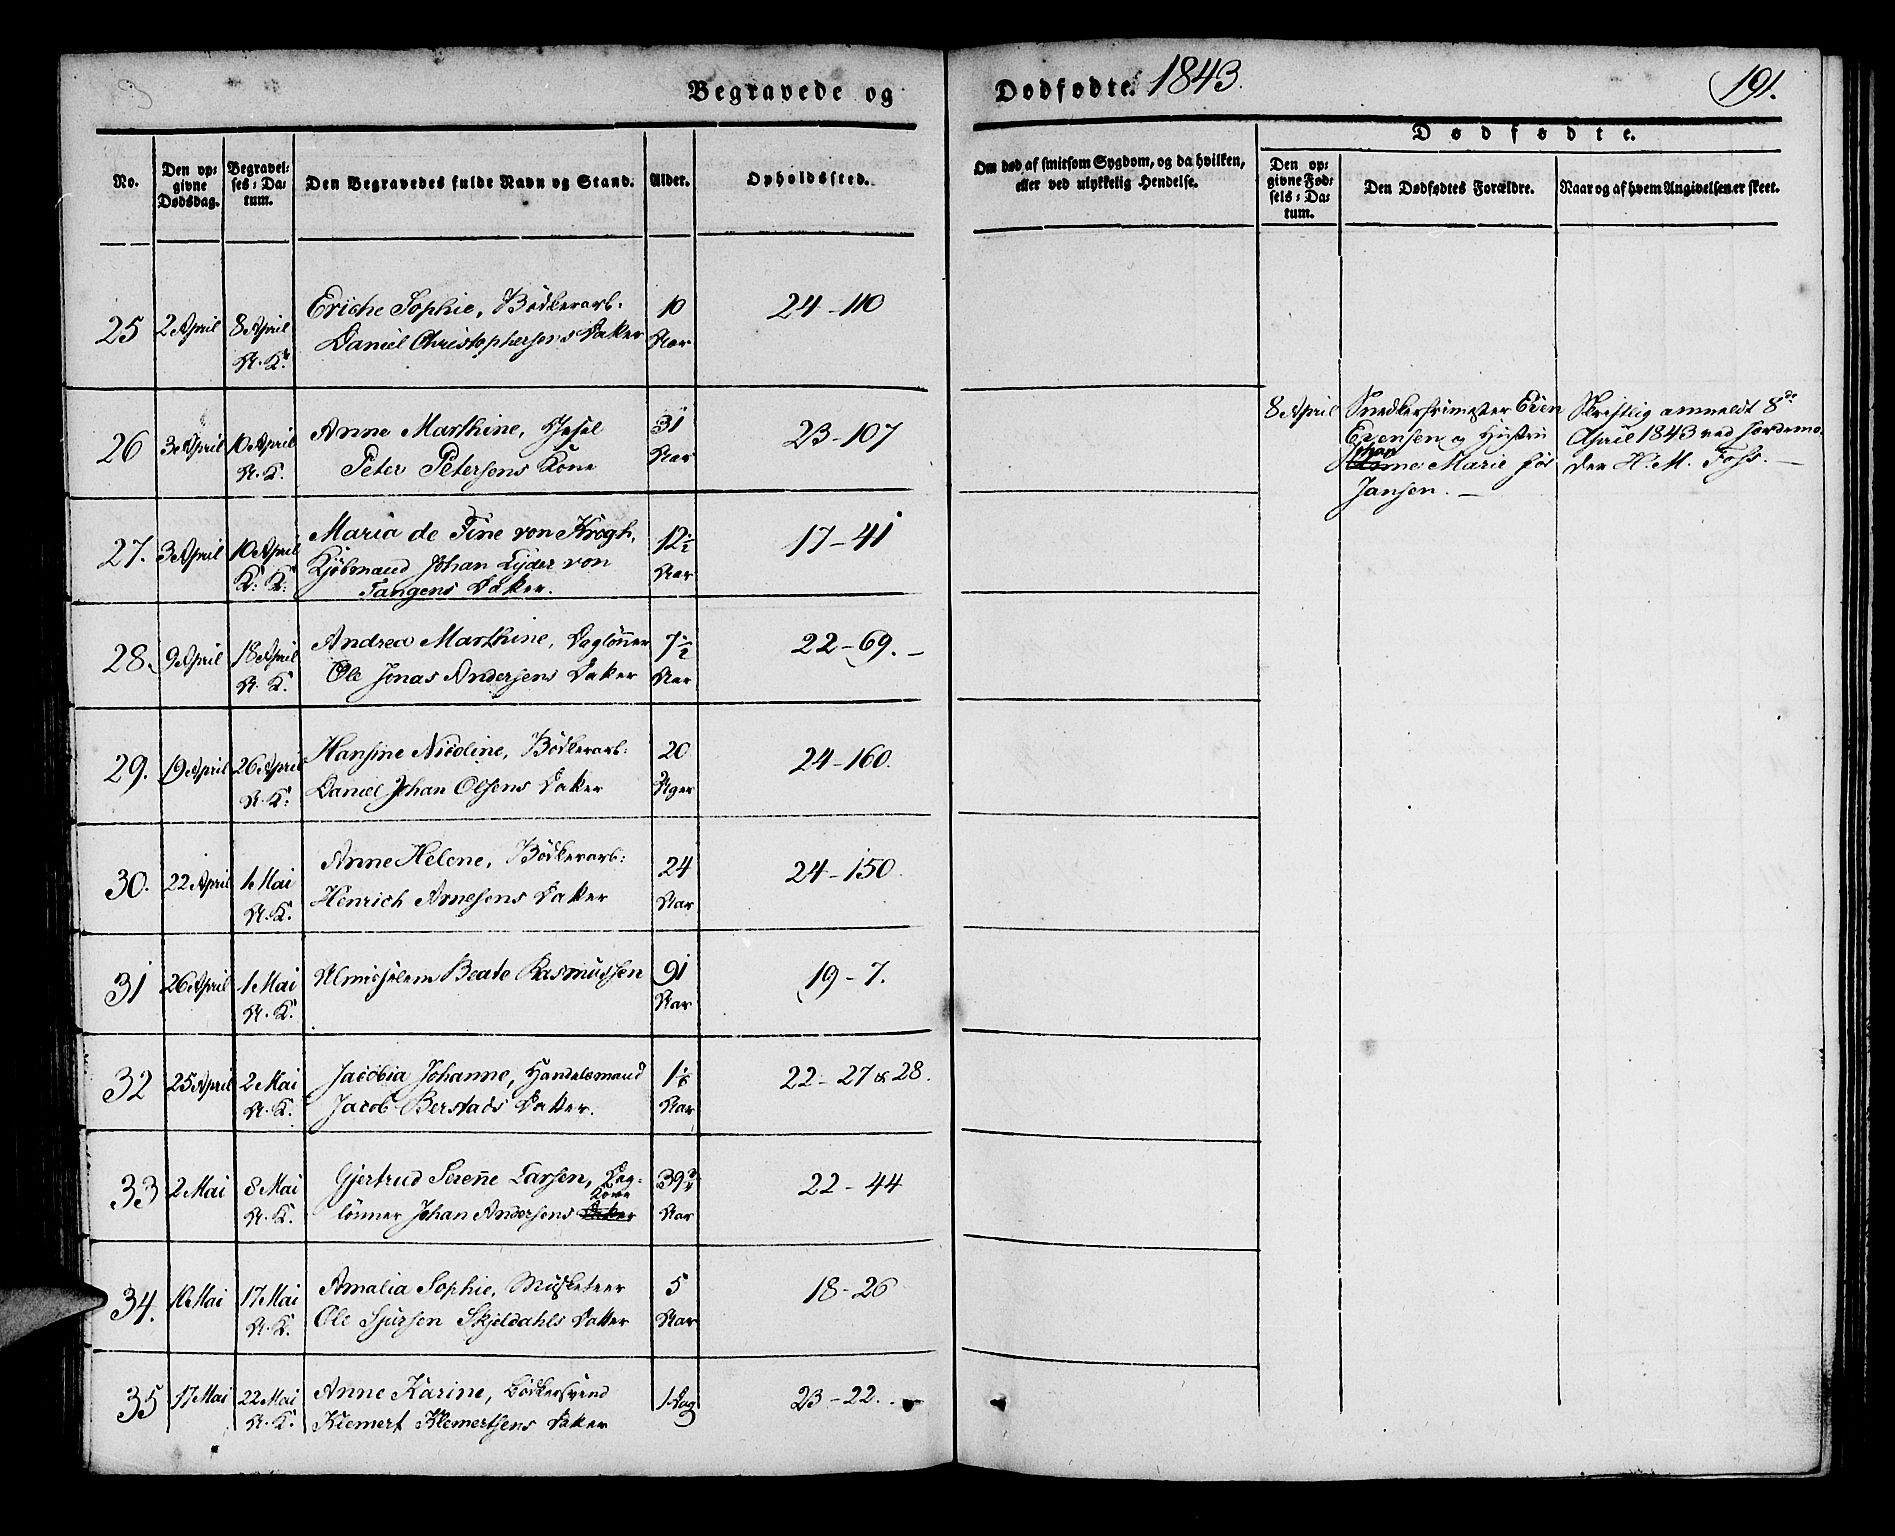 Begravede og
Dødfødte. 1843.
191.
No.
Den op-
givne
Dødsdag.
Begravel-
ses-Da-
tum.
Den Begravedes fulde Navn og Stand.
Alder.
Opholdssted.
Om død af smitsom Sygdom, og da hvilken,
eller ved ulykkelig Hendelse.
Dødfødte.
Den op-
givne Fød-
sels-Da-
tum.
Den Dødfødtes Forældre.
Naar og af hvem Angivelsen er skeet.
25 2 April 8 April Eriche Sophie, Bødkerarb: 10 24-110
Daniel Christophersens Datter Aar
26 3 April 10 April Anne Marthine, 31 23-107
Peter Petersens Kone Aar
8 April
Even
Evensen og Hustru
Marie
Jansen.
Skriftlig anmeldt 8de
April 1843 ved Jordemo-
der H. M. Foss.
27. 3 April 10 April Maria de Fine von Krogh, 12½ 17-41
K. K. Kjøbmand Johan Lyder von Aar
Tangens Datter.
28. 9 April 18 April Andrea Marthine, Daglønner 7½ 22-69.
Ole Jonas Andersens Datter Aar
29. 19 April 26 April Hansine Nicoline, Bødkerarb: 20 24-160.
Daniel Johan Olsens Datter Uger
30. 22 April 1 Mai Anne Helene, Bødkerarb: 24 24-150.
Henrich Arnesens Datter Aar
31 26 April 1 Mai Beate Rasmussen 91 19-7.
Aar
32 25 April 2 Mai Jacobia Johanne, Handelsmand 22-27 & 28.
Jacob Berstads Datter. Aar
33 2 Mai 8 Mai Gjertrud Serenne Larsen, Dag- 22-44
Kone
lønner Johan Andersens Datter Aar
34. 17 Mai Amalia Sophie, Musketeer 5 18-26
Ole Sjursen Skjeldahls Datter Aar
35 17 Mai 22 Mai Anne Karine, Bødkersvend 1 Dag 23-22.
Klemert Klemertsens Datter